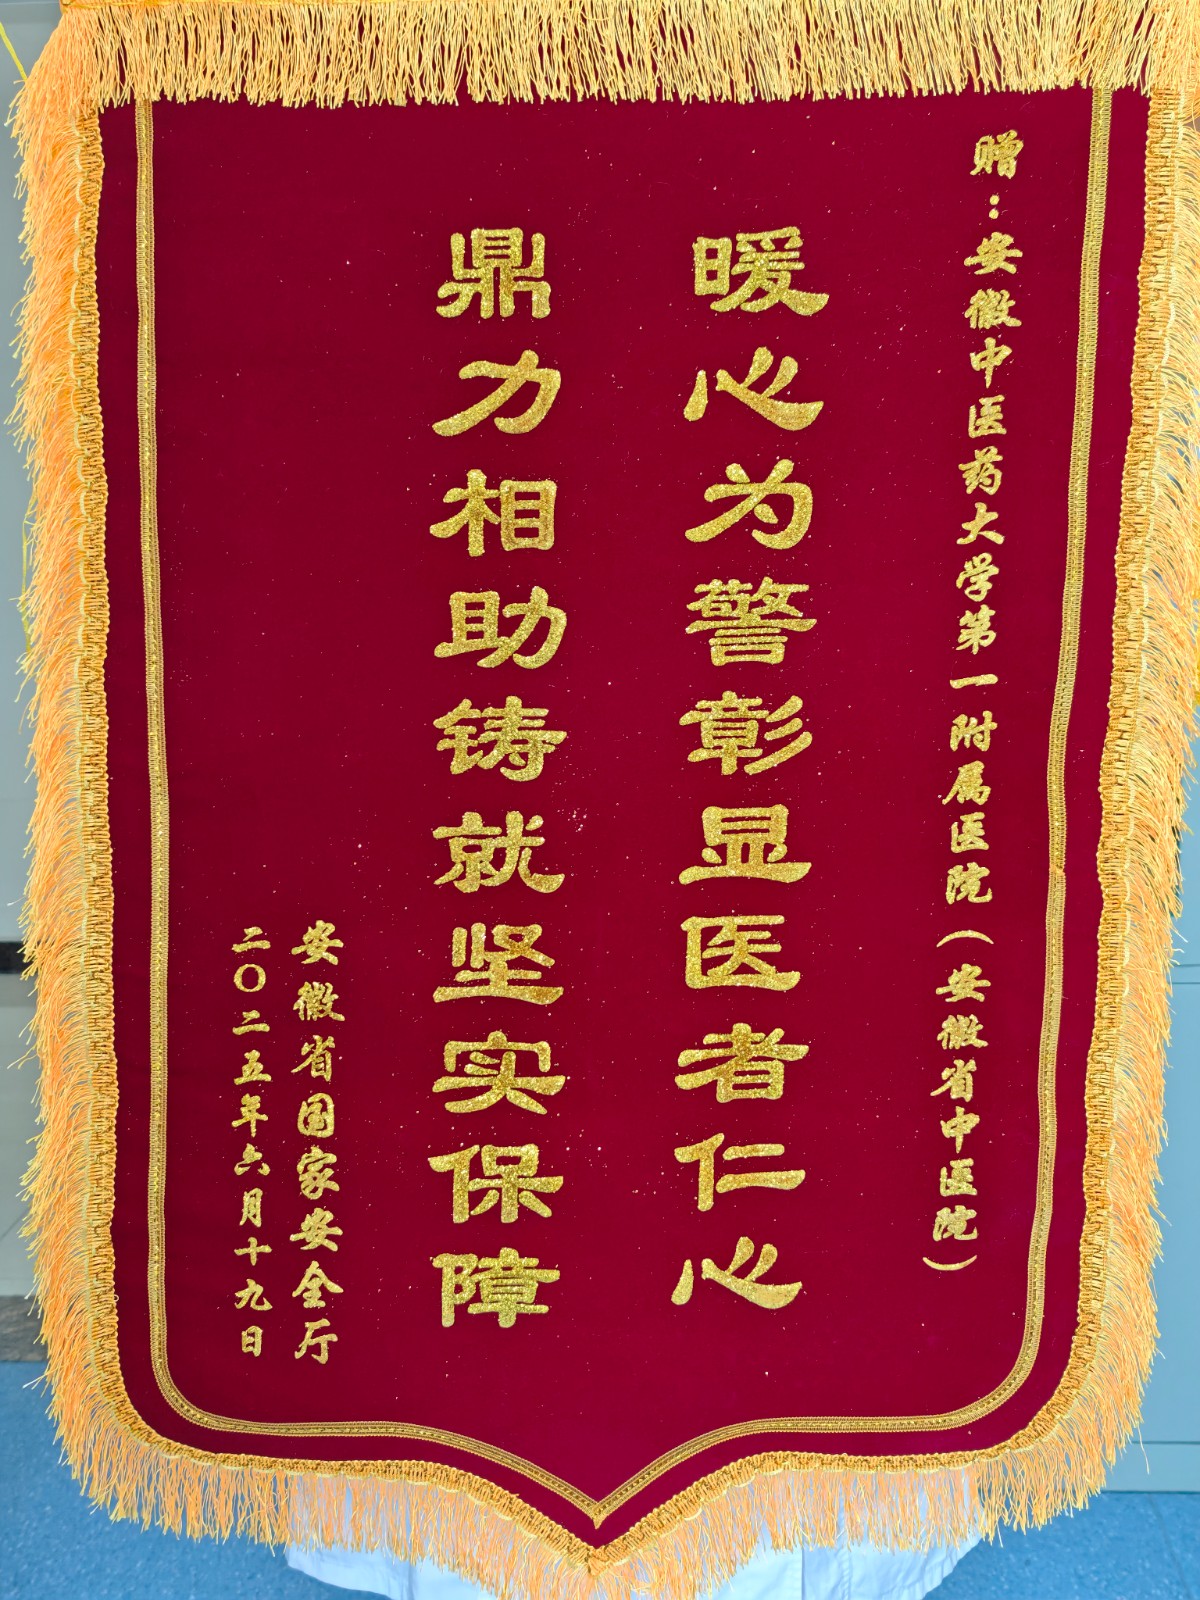 赠：安徽中医药大学第一附属医院（安徽省中医院）
暖心为警彰显医者仁心
鼎力相助铸就坚实保障
安徽省国家安全厅
二〇二五年六月十九日